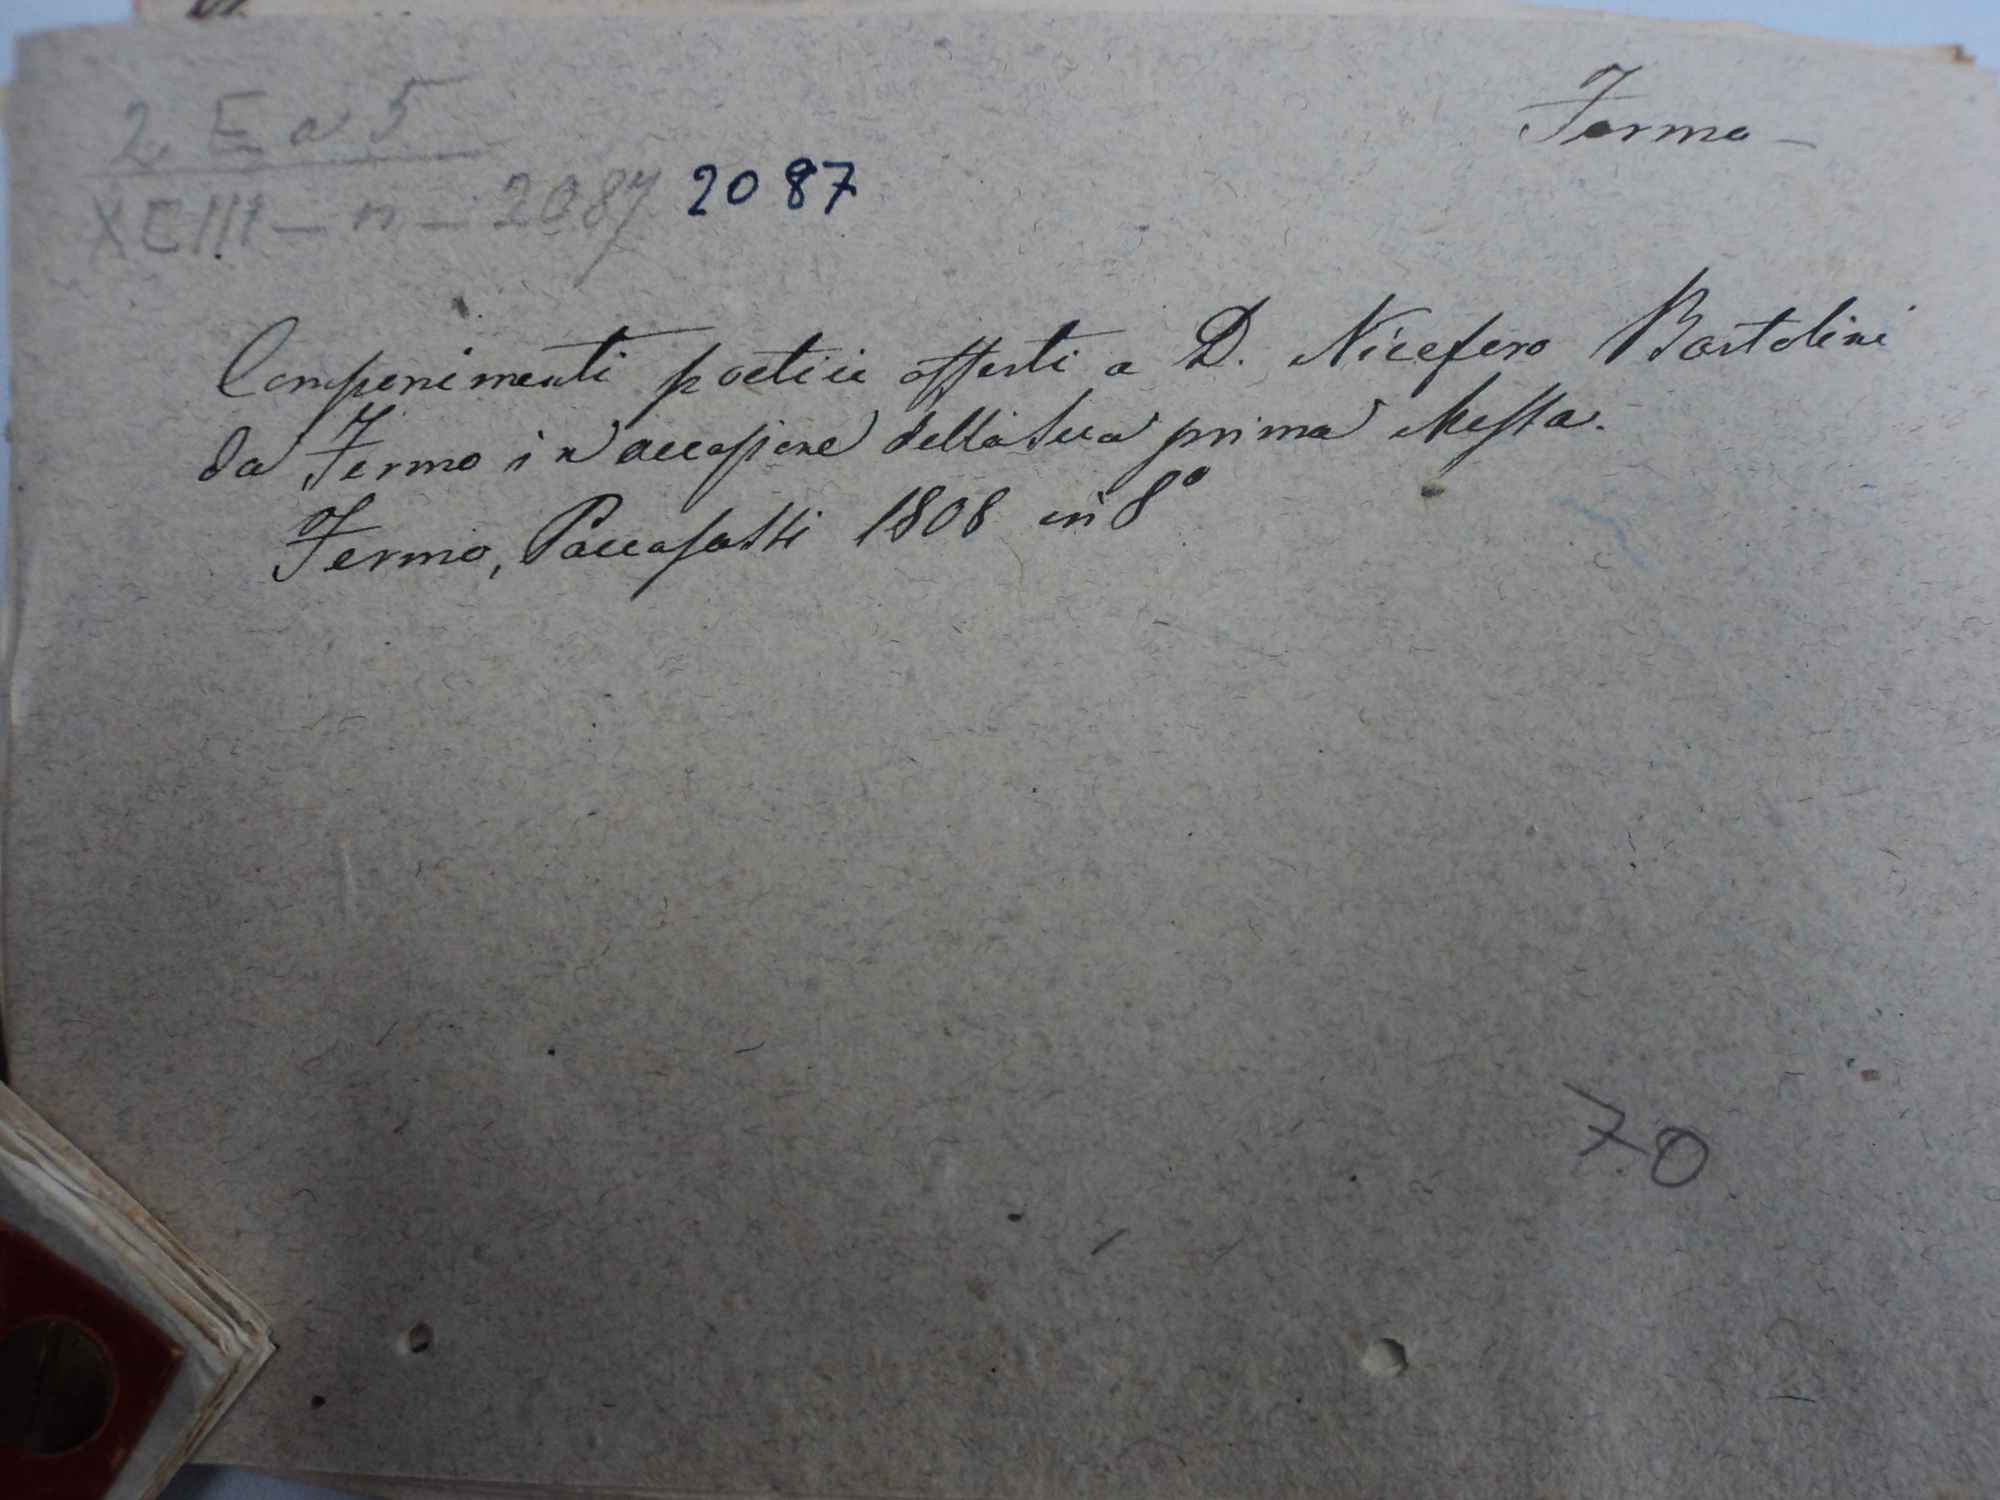 2 E a 5
Fermo -
XCIII - n - 2087 2087
Componimenti poetici offerti a D. Nicefero Bartolini
da Fermo in occasione della sua prima Messa.
Fermo, Paccasassi 1808 in 8°
70